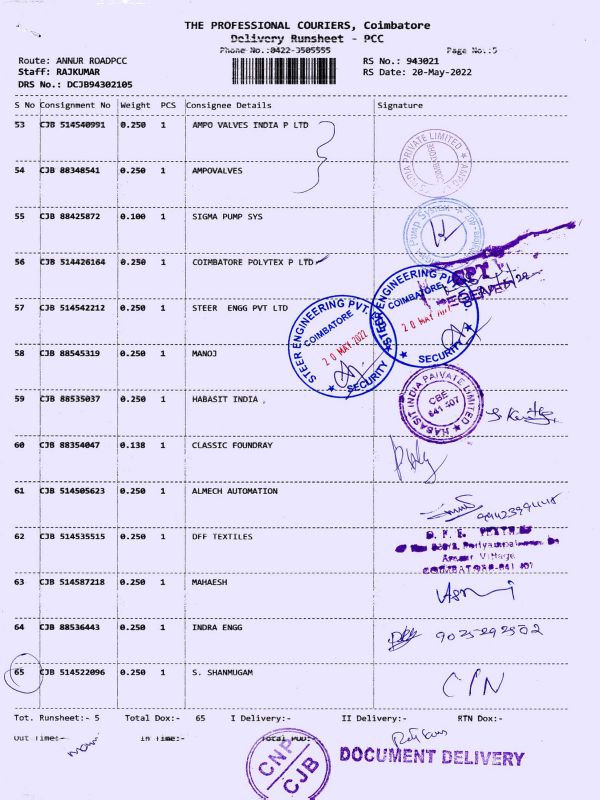 THE PROFESSIONAL COURIERS, Coimbatore
Delivery Runsheet - PCC
Phone No.:0422-3505555
Page No.:5
Route: ANNUR ROADPCC
RS No.: 943021
Staff: RAJKUMAR
RS Date: 20-May-2022
DRS No.: DCJB94302105
S No Consignment No Weight PCS Consignee Details Signature
53 CJB 514540991 0.250 1 AMPO VALVES INDIA P LTD
INDIA PRIVATE LIMITED
COIMBATORE
54 CJB 88348541 0.250 1 AMPOVALVES
55 CJB 88425872 0.100 1 SIGMA PUMP SYS
56 CJB 514426164 0.250 1 COIMBATORE POLYTEX P LTD
57 CJB 514542212 0.250 1 STEER ENGG PVT LTD
STEER ENGINEERING PVT.
COIMBATORE
20 MAY 2022
SECURITY
STEER ENGINEERING PVT.
COIMBATORE
20 MAY
SECURITY
58 CJB 88545319 0.250 1 MANOJ
59 CJB 88535037 0.250 1 HABASIT INDIA ,
HABASIT INDIA PRIVATE LIMITED
CBE
641 107
60 CJB 88354047 0.138 1 CLASSIC FOUNDRAY
61 CJB 514505623 0.250 1 ALMECH AUTOMATION
62 CJB 514535515 0.250 1 DFF TEXTILES
Village
63 CJB 514587218 0.250 1 MAHAESH
64 CJB 88536443 0.250 1 INDRA ENGG
65 CJB 514522096 0.250 1 S. SHANMUGAM
Tot. Runsheet:- 5 Total Dox:- 65 I Delivery:- II Delivery:- RTN Dox:-
Out Time:- In Time:- Total
CNP
CJB
DOCUMENT DELIVERY